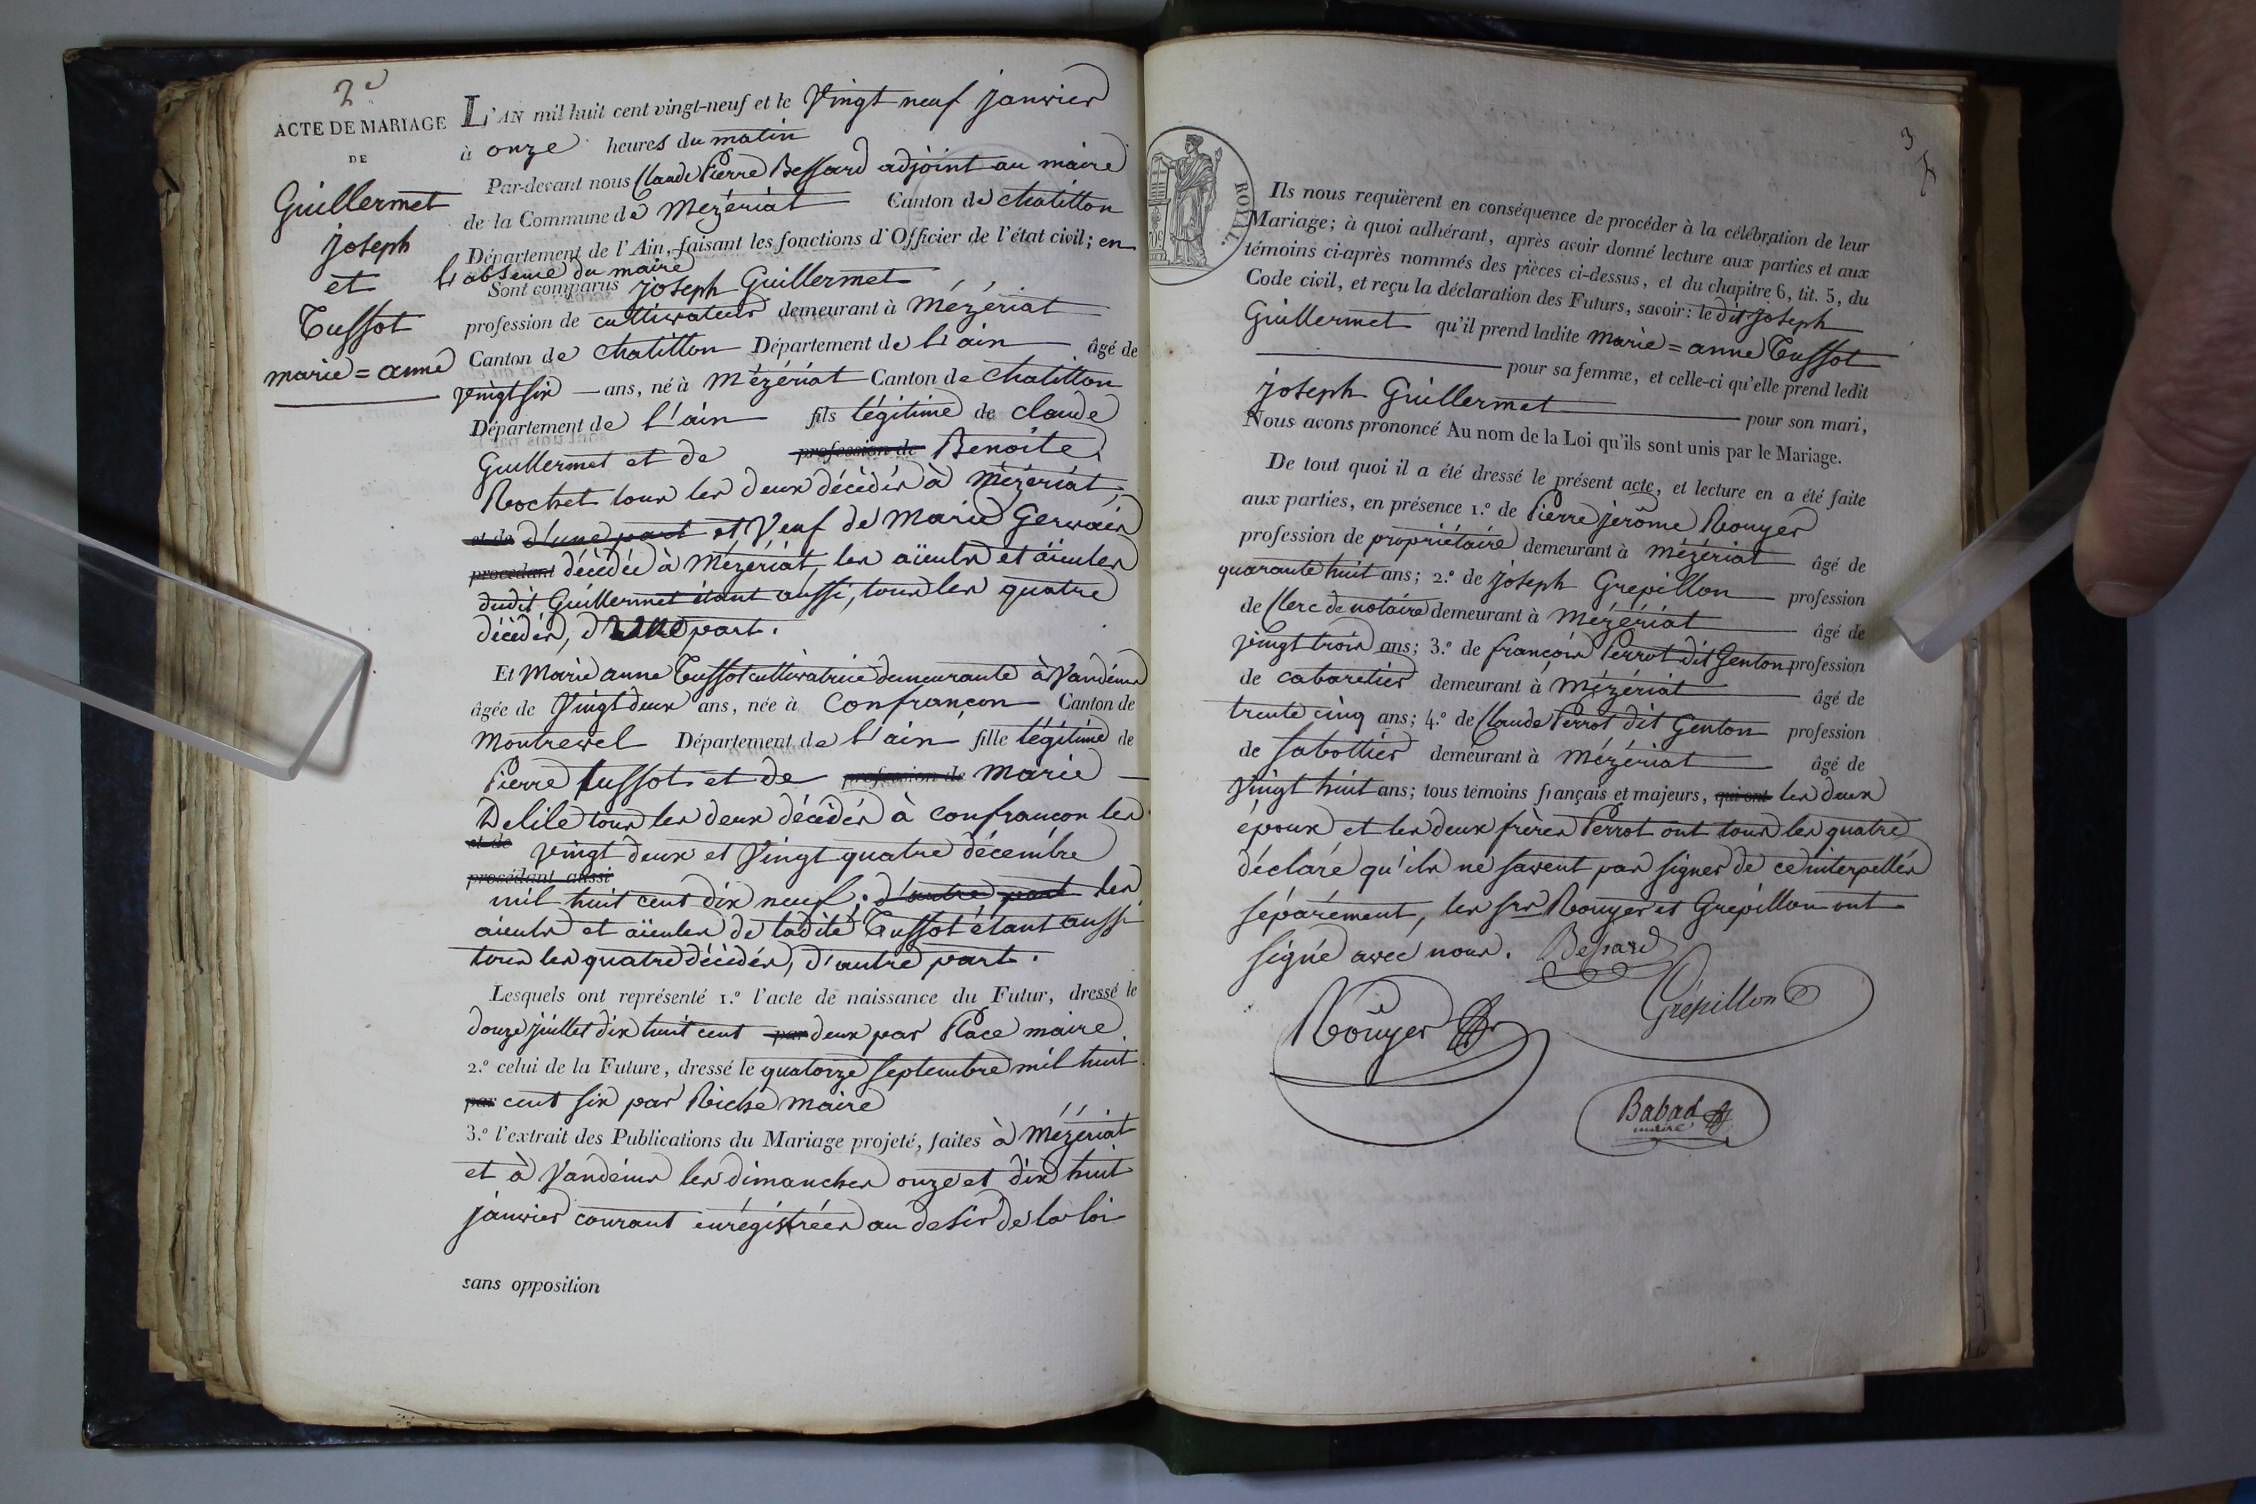 2e
ACTE DE MARIAGE
DE
Guillermet
joseph
et
Tussot
marie=anne
L'AN mil huit cent vingt-neuf et le Vingt neuf janvier
à onze heures du matin
Par-devant nous Claude Pierre Bessard adjoint au maire
de la Commune de Mézériat Canton de chatillon
Département de l'Ain, faisant les fonctions d'Officier de l'état civil; en
l'absence du maire
Sont comparus joseph Guillermet
profession de cultivateur demeurant à Mézériat
Canton de chatillon Département de l'ain âgé de
vingt six ans, né à Mézériat Canton de chatillon
Département de l'ain fils légitime de claude
Guillermet et de profession de Benoite
Rochet tous les deux décédés à Mézériat,
et de d'une part et Veuf de Marie Gervais
procédant décédée à Mézériat, les aïeuls et aïeules
dudit Guillermet étant aussi, tous les quatre
décédés, d'une part.
Et Marie anne Tussot cultivatrice demeurante à Vandeins
âgée de Vingt deux ans, née à Confrançon Canton de
Montrevel Département de l'ain fille légitime de
Pierre tussot et de profession de marie
Delile tous les deux décédés à confrançon les
et de vingt deux et Vingt quatre décembre
procédant aussi
mil huit cent dix neuf; d'autre part les
aïeuls et aïeules de ladite Tussot étant aussi
tous les quatre décédés, d'autre part.
Lesquels ont représenté 1.º l'acte de naissance du Futur, dressé le
douze juillet dix huit cent par deux par Place maire
2.º celui de la Future, dressé le quatorze septembre mil huit
par cent six par Riche maire
3.º l'extrait des Publications du Mariage projeté, faites à Mézériat
et à Vandeins les dimanches onze et dix huit
janvier courant enrégistrées au desir de la loi
sans opposition
3
ROYAL.
Ils nous requièrent en conséquence de procéder à la célébration de leur
Mariage; à quoi adhérant, après avoir donné lecture aux parties et aux
témoins ci-après nommés des pièces ci-dessus, et du chapitre 6, tit. 5, du
Code civil, et reçu la déclaration des Futurs, savoir: le dit joseph
Guillermet qu'il prend ladite marie=anne Tussot
pour sa femme, et celle-ci qu'elle prend ledit
joseph Guillermet pour son mari,
Nous avons prononcé Au nom de la Loi qu'ils sont unis par le Mariage.
De tout quoi il a été dressé le présent acte, et lecture en a été faite
aux parties, en présence 1.º de Pierre jerôme Rouyer
profession de propriétaire demeurant à Mézériat âgé de
quarante huit ans; 2.º de joseph Grepillon profession
de Clerc de notaire demeurant à Mézériat âgé de
vingt trois ans; 3.º de françois Perrot dit Genton profession
de cabaretier demeurant à Mézériat âgé de
trente cinq ans; 4.º de Claude Perrot dit Genton profession
de sabottier demeurant à Mézériat âgé de
Vingt huit ans; tous témoins français et majeurs, qui ont les deux
époux et les deux frères Perrot ont tous les quatre
déclaré qu'ils ne savent pas signer de ce interpellés
séparément, les srs Rouyer et Grépillon ont
signé avec nous. Bessard
Grépillon
Rouyer
Babad
maire